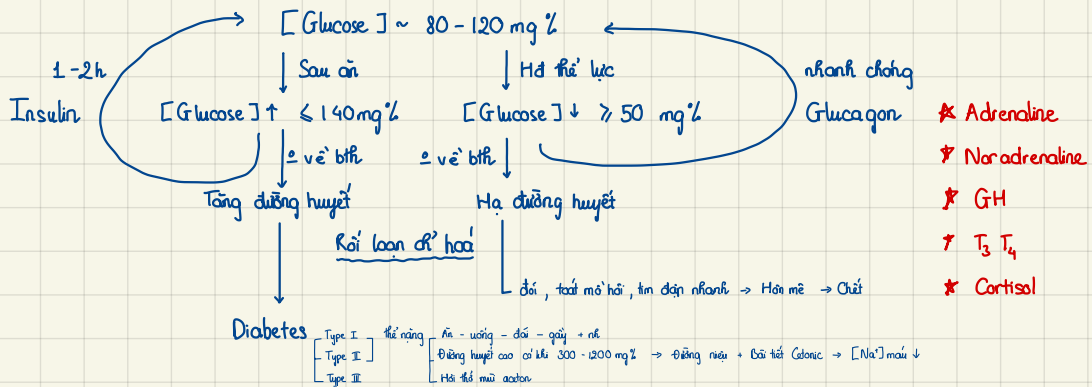 [Glucose] ~ 80 - 120 mg%
1 - 2h
Sau ăn
Hđ thể lực
nhanh chóng
Insulin
[Glucose] ↑ ≤ 140 mg%
[Glucose] ↓ ≥ 50 mg%
Glucagon
* Adrenaline
* Noradrenaline
* GH
* T3 T4
* Cortisol
về bth
về bth
Tăng đường huyết
Hạ đường huyết
Rối loạn ch² hoá
đói, toát mồ hôi, tim đập nhanh → Hôn mê → Chết
Diabetes
Type I
Type II
Type III
thể nặng
Ăn - uống - đái - gầy + nh
Đường huyết cao có khi 300 - 1200 mg% → Đường niệu + Bài tiết Cetonic → [Na⁺] máu ↓
Hơi thở mùi aceton